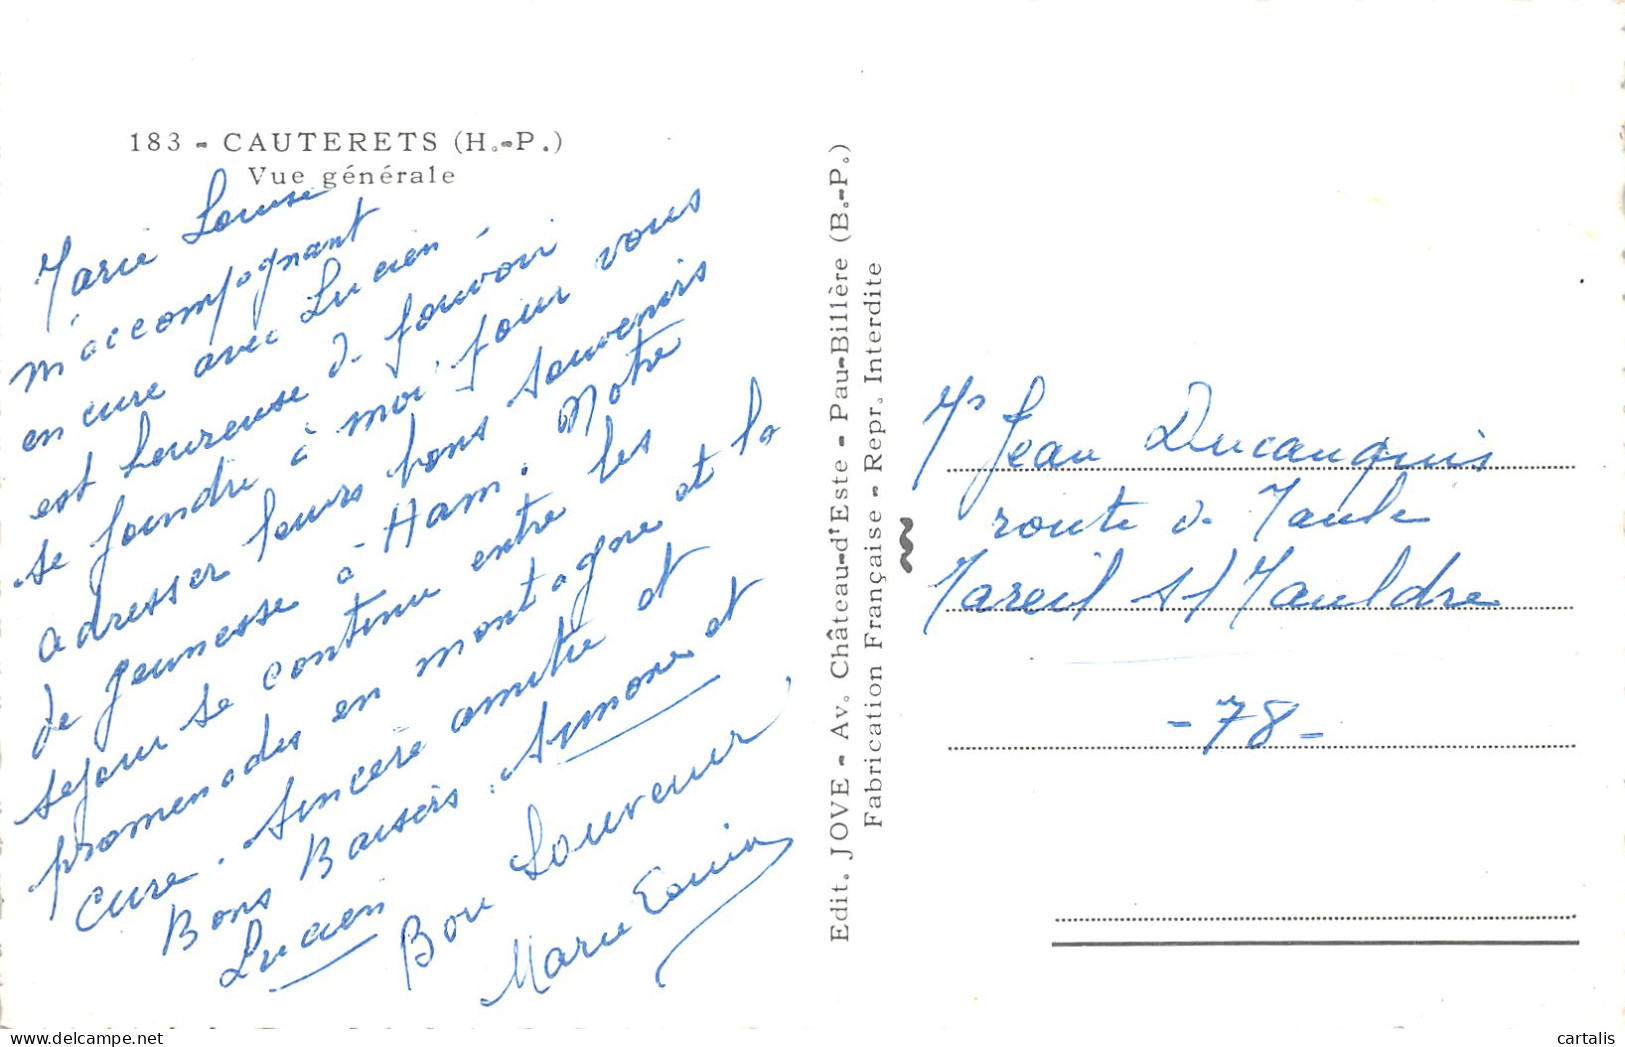 183 - CAUTERETS (H.-P.)
Vue générale
Marie Louise
m'accompagnant
en cure avec Lucien -
est heureuse de pouvoir
se joindre à moi, pour vous
adresser leurs bons souvenirs
de jeunesse à Ham. Notre
séjour se continue entre les
promenades en montagne et la
cure. Sincère amitié et
Bons Baisers. Simone et
Lucien
Bon Souvenir
Marie
Edit. JOVE - Av. Château-d'Este - Pau-Billère (B.-P.)
Fabrication Française - Repr. Interdite
Mr Jean Ducanquis
route de Maule
Mareil s/ Mauldre
- 78 -
cartalis